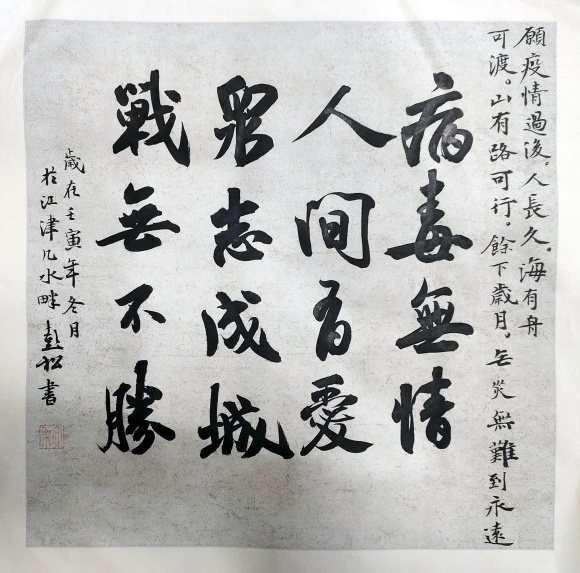 願疫情過後。人長久。海有舟
可渡。山有路可行。餘下歲月。無災無難到永遠
病毒無情
人間有愛
眾志成城
戰無不勝
歲在壬寅年冬月
於江津几水畔彭松書